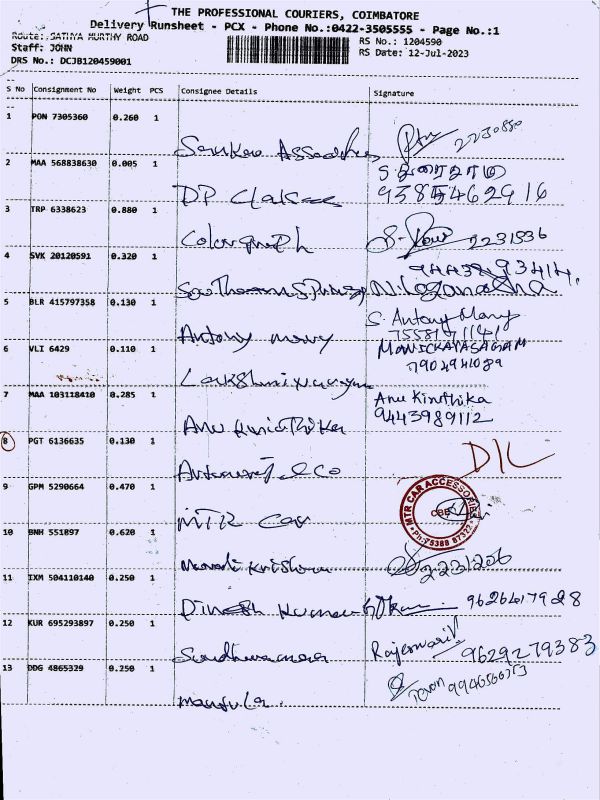 THE PROFESSIONAL COURIERS, COIMBATORE
Delivery Runsheet - PCX - Phone No.:0422-3505555 - Page No.:1
Route: SATHYA MURTHY ROAD
RS No.: 1204590
Staff: JOHN
RS Date: 12-Jul-2023
DRS No.: DCJB120459001
S No Consignment No Weight PCS Consignee Details Signature
1 PON 7305360 0.260 1
2230550
2 MAA 568838630 0.005 1
DP
9385462916
3 TRP 6338623 0.880 1
2231536
4 SVK 20120591 0.320 1
Southern
N. Loganatha
5 BLR 415797358 0.130 1
Antony mary
S. Antony Mary
6 VLI 6429 0.110 1
MANICKAVASAGAM
7904941089
7 MAA 103118410 0.285 1
Anu Kiruthika
Anu Kinthika
9443989112
8 PGT 6136635 0.130 1
& Co
D/L
9 GPM 5290664 0.470 1
MTR Car
MTR CAR ACCESSORIES
CBE
Ph:75388 87322
10 BNH 551897 0.620 1
Murali Krishna
2231206
11 IXM 504110140 0.250 1
Dinesh Kumar
9626417928
12 KUR 695293897 0.250 1
Rajeswari
9629279383
13 DDG 4865329 0.250 1
Manjula.